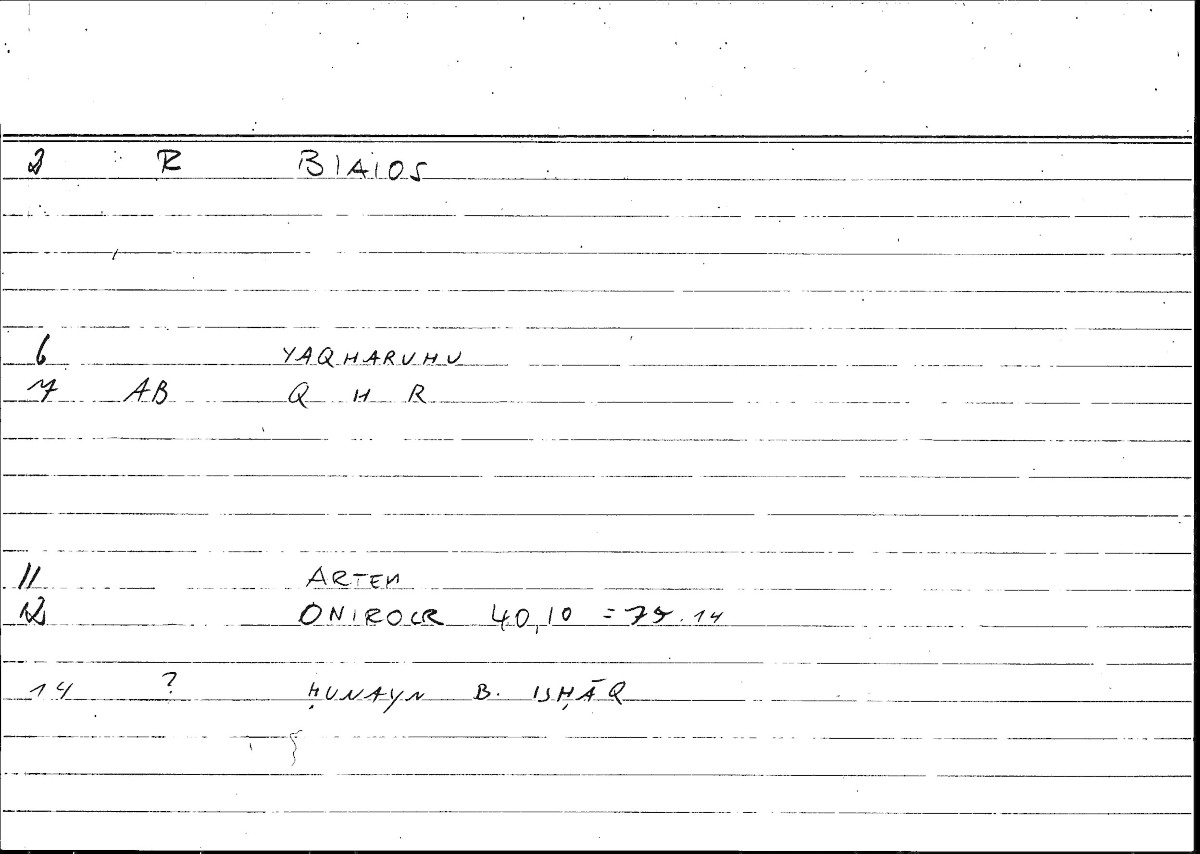 2 R BIAIOS
6 YAQHARUHU
7 AB Q H R
11 ARTEM
12 ONIROCR 40,10 = 75.14
14 ? ḤUNAYN B. ISḤĀQ